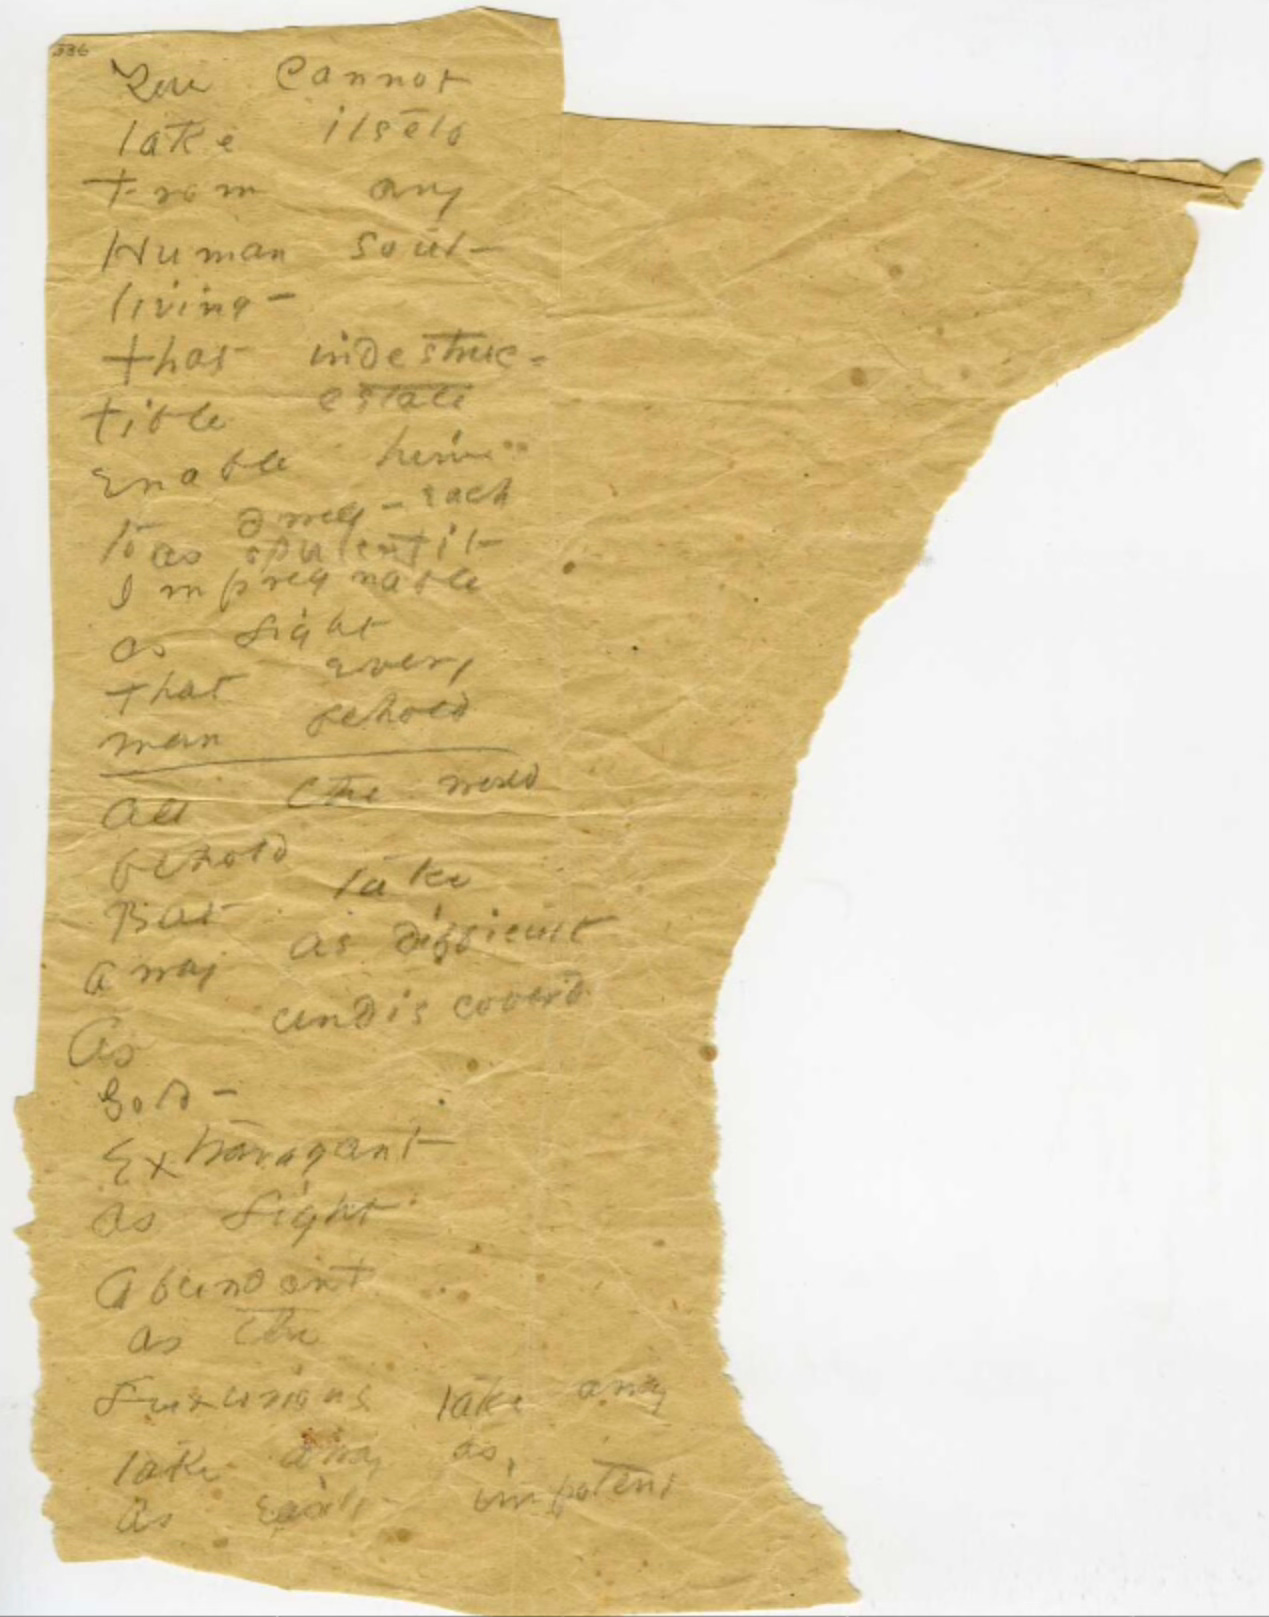 536
You Cannot
take itself
from any
Human soul –
living –
that indestruc-
tible estate
Enable him
to Away – each
as opulent it
Impregnable
as Light
That every
man behold
All the world
behold
But take
away as difficult
As undiscovered
Gold –
Extravagant
as Light
Abundant
as the
Luxurious take away
take away as,
as impotent